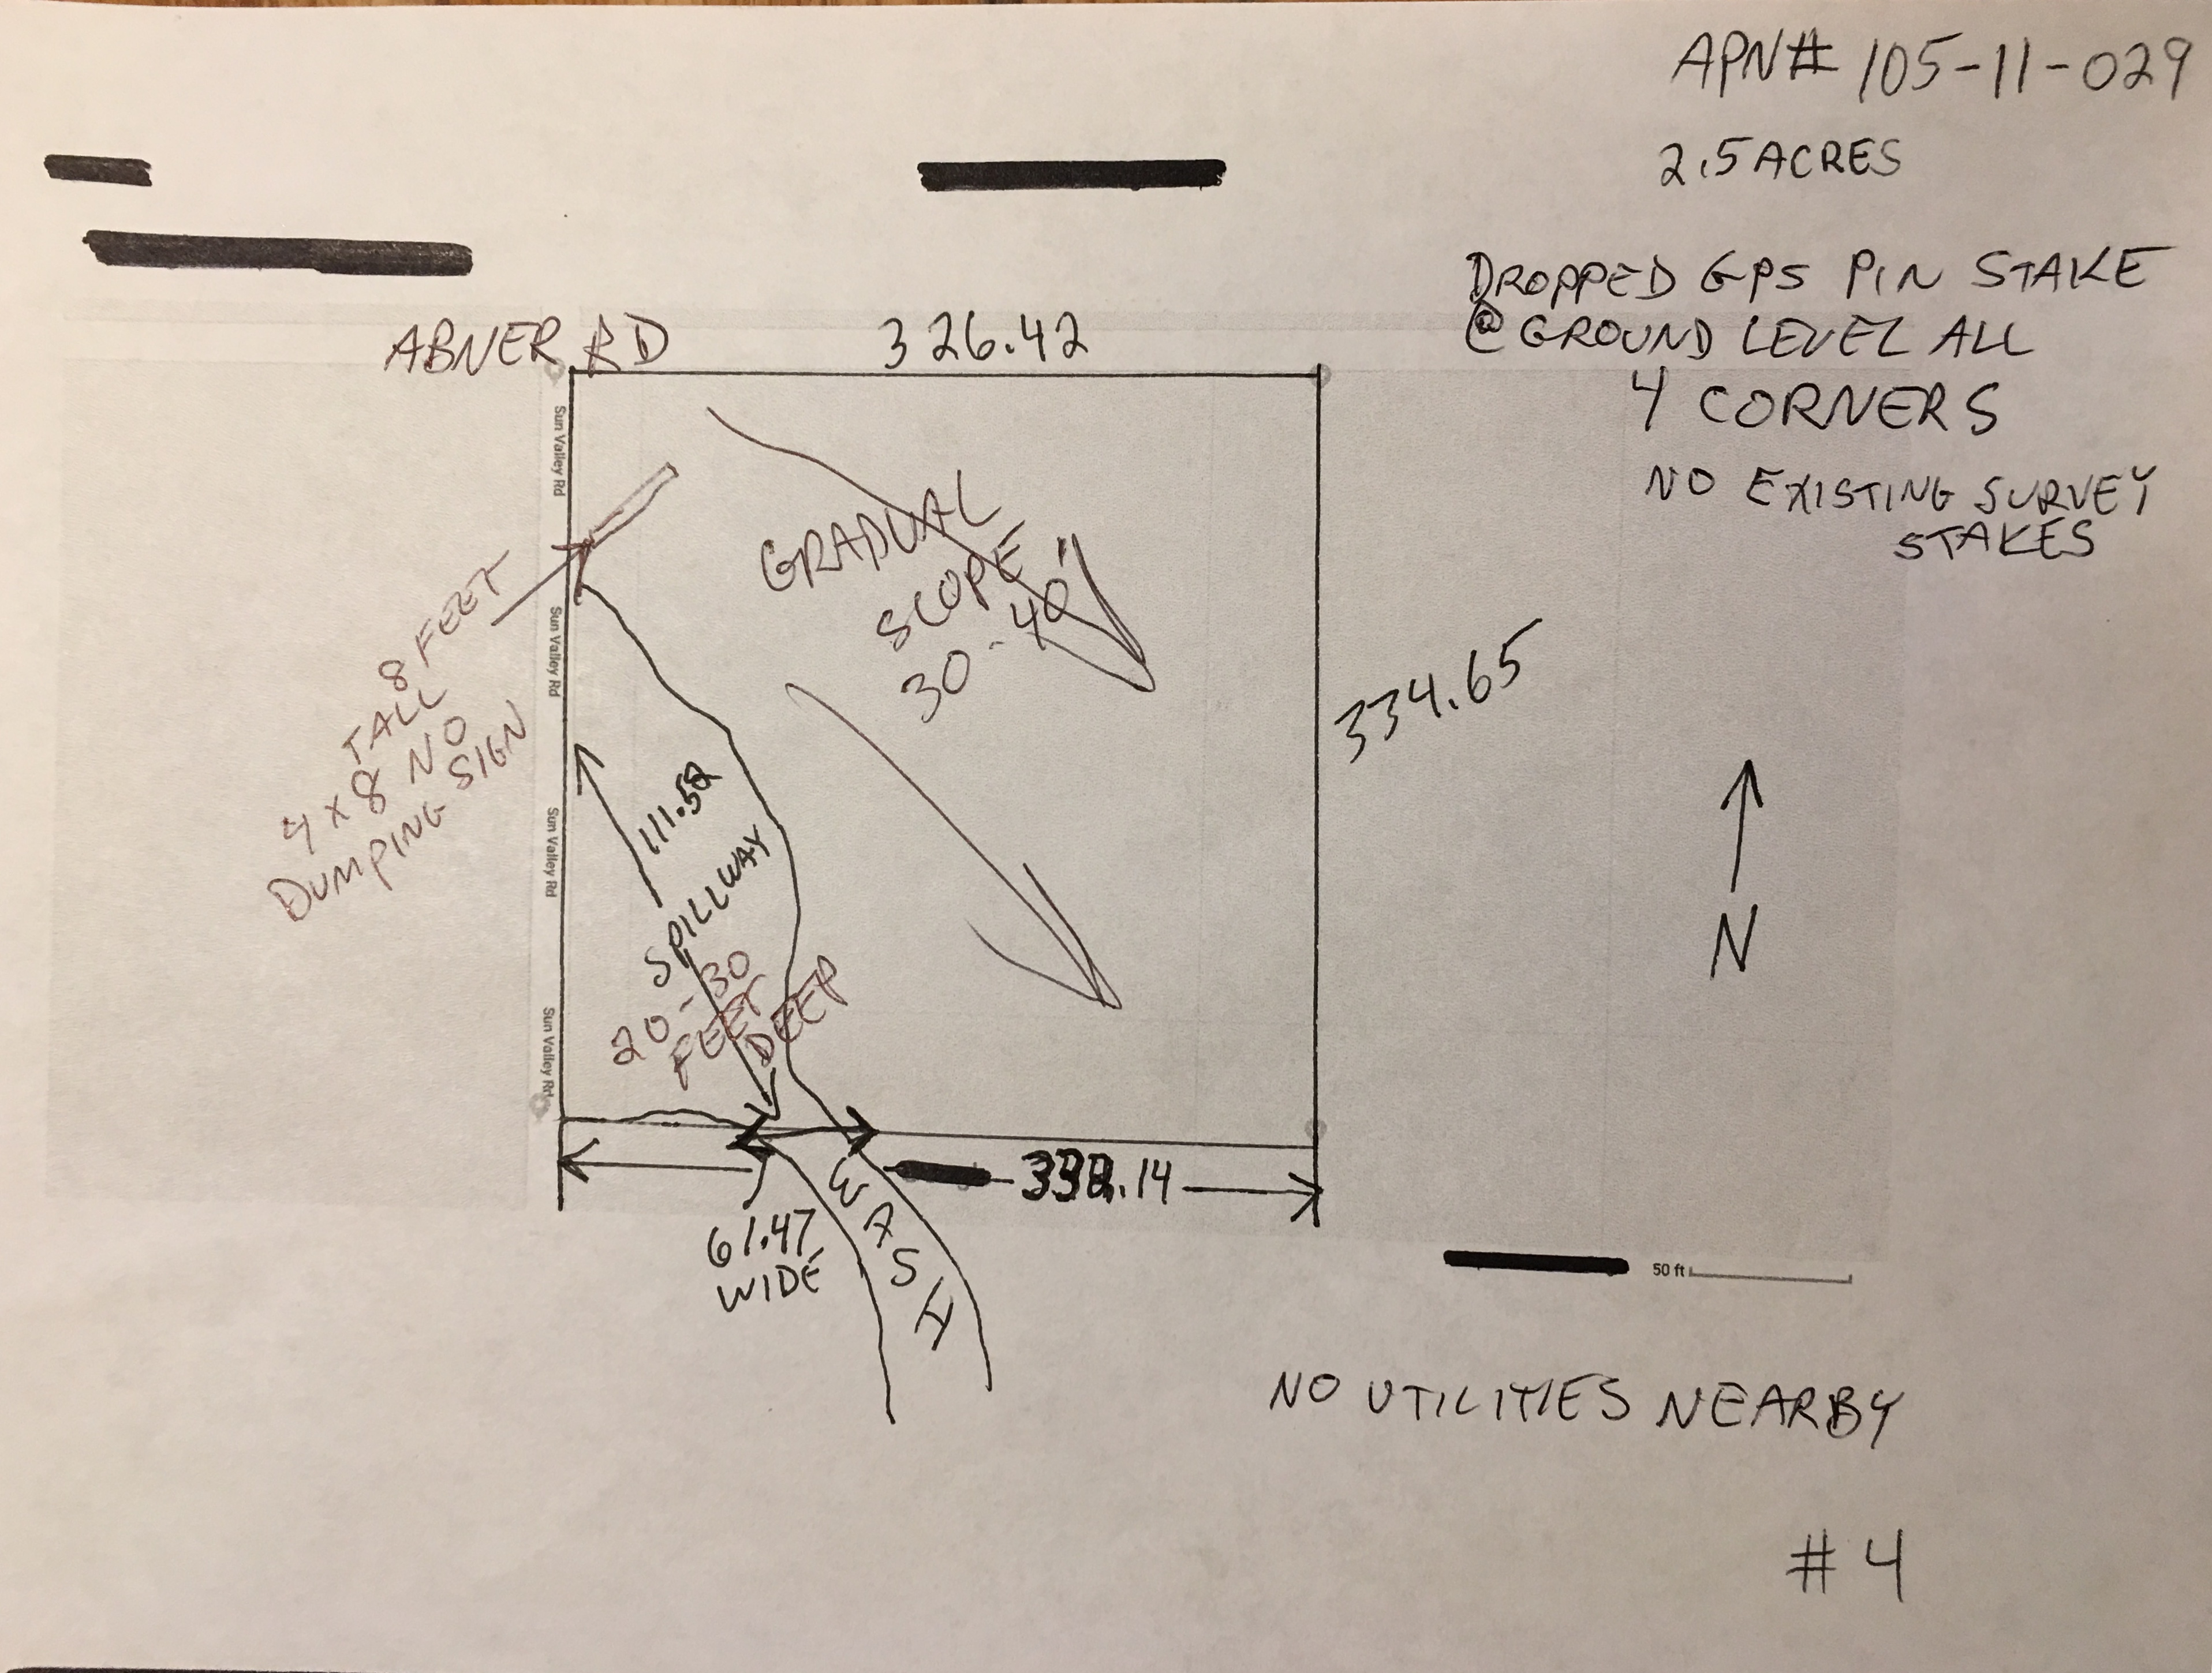 APN# 105-11-029
2.5 ACRES
DROPPED GPS PIN STAKE
@ GROUND LEVEL ALL
4 CORNERS
NO EXISTING SURVEY
STAKES
ABNER RD
326.42
Sun Valley Rd
Sun Valley Rd
Sun Valley Rd
Sun Valley Rd
GRADUAL
SCOPE
30-40'
8 FEET
TALL
4x8 NO
DUMPING SIGN
334.65
N
111.52
SPILLWAY
20-30
FEET
DEEP
.14
61.47
WIDE
WASH
50 ft
NO UTILITIES NEARBY
#4